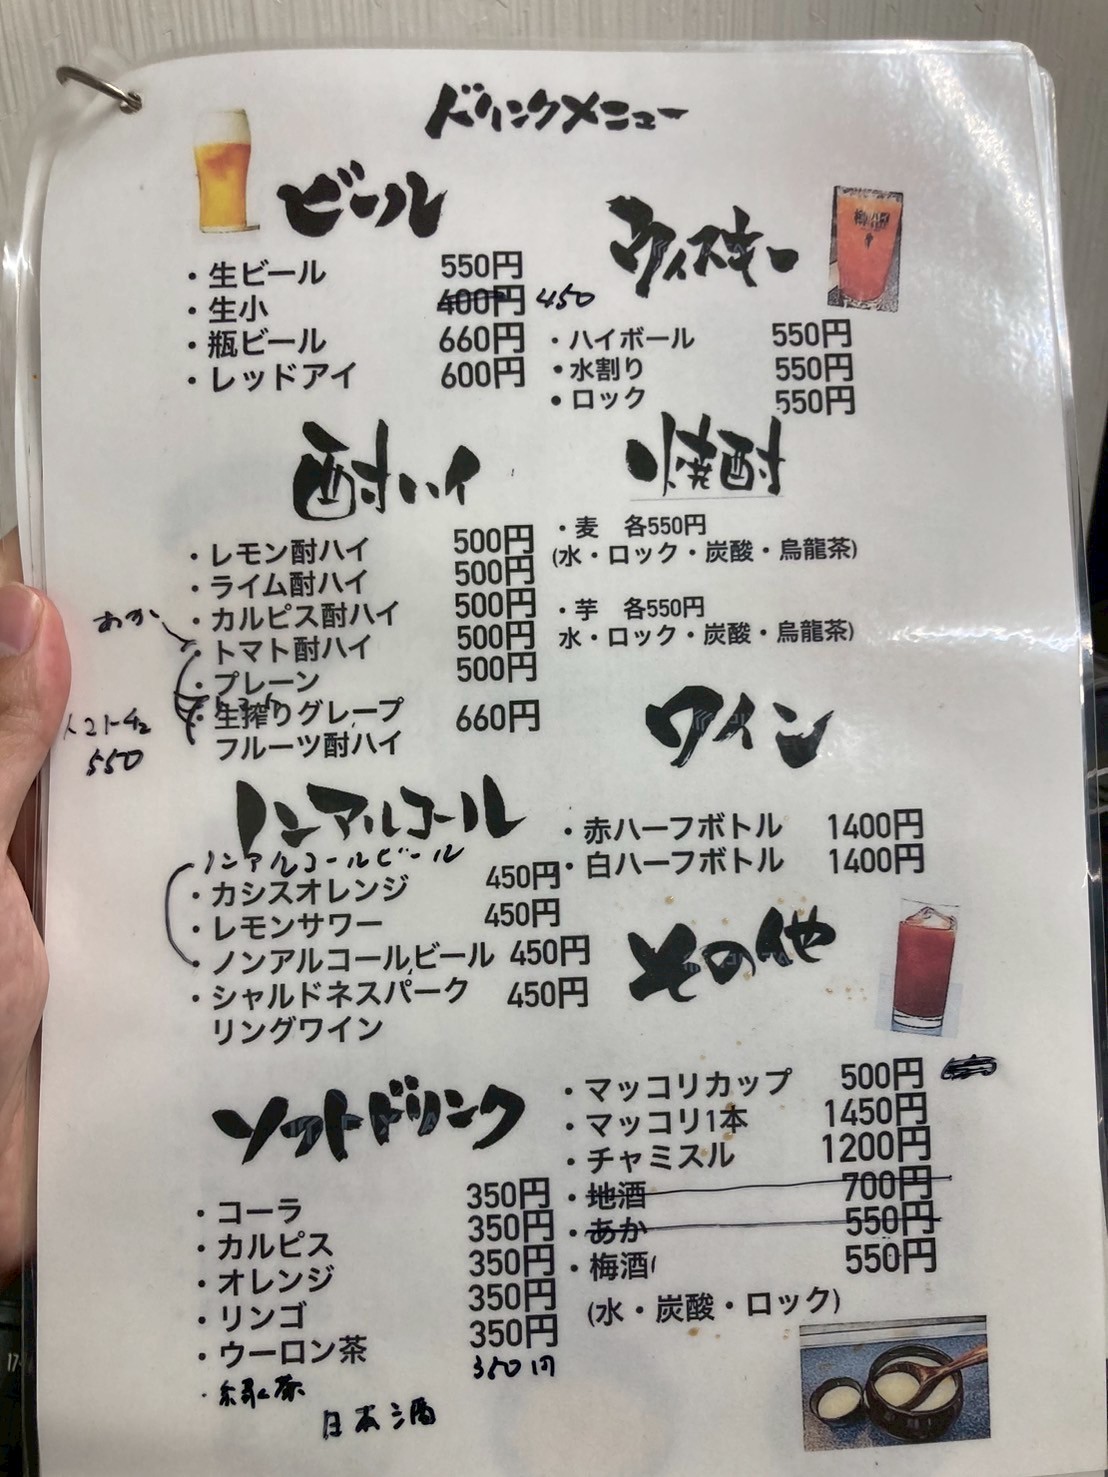 ドリンクメニュー
ビール
・生ビール 550円
・生小 400円 450
・瓶ビール 660円
・レッドアイ 600円
ウイスキー
・ハイボール 550円
・水割り 550円
・ロック 550円
酎ハイ
・レモン酎ハイ 500円
・ライム酎ハイ 500円
・カルピス酎ハイ 500円
あか
・トマト酎ハイ 500円
・プレーン 500円
・生搾りグレープ 660円
フルーツ酎ハイ
550
焼酎
・麦 各550円
(水・ロック・炭酸・烏龍茶)
・芋 各550円
水・ロック・炭酸・烏龍茶)
ワイン
・赤ハーフボトル 1400円
・白ハーフボトル 1400円
ノンアルコール
ノンアルコールビール
・カシスオレンジ 450円
・レモンサワー 450円
・ノンアルコールビール 450円
・シャルドネスパーク 450円
リングワイン
その他
・マッコリカップ 500円
・マッコリ1本 1450円
・チャミスル 1200円
・地酒 700円
・あか 550円
・梅酒( 550円
(水・炭酸・ロック)
ソフトドリンク
・コーラ 350円
・カルピス 350円
・オレンジ 350円
・リンゴ 350円
・ウーロン茶 350円
・緑茶 350円
日本酒